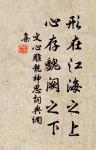 形在江海之上
心存魏阙之下
文心雕龍神思詞典網
集